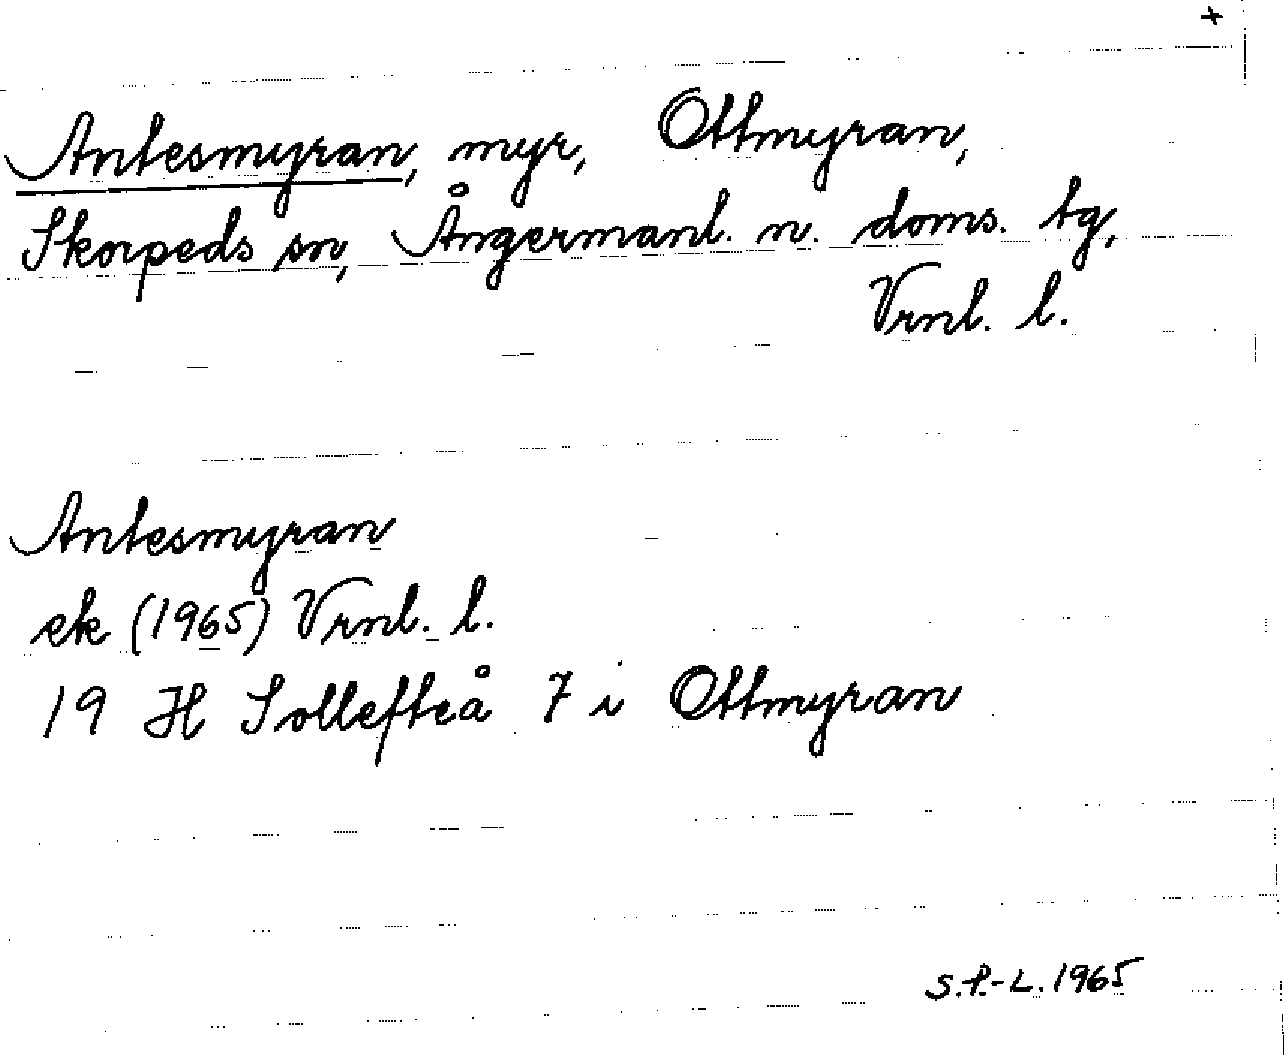 +
Antesmyran, myr, Ottmyran,
Skorpeds sn, Ångermanl. n. doms. tg,
Vrnl. l.
Antesmyran
ek (1965) Vrnl. l.
19 H Sollefteå 7 i Ottmyran
S.P.-L. 1965